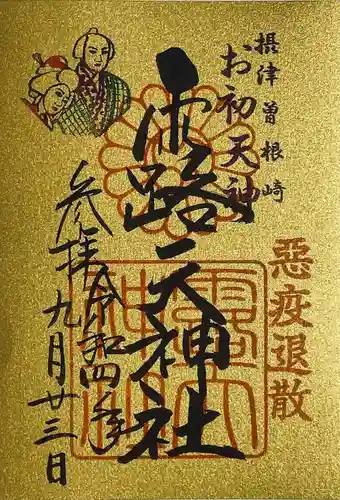 摂津曽根崎
お初天神
露天神社
惡疫退散
参拝 令和四年
九月廿三日